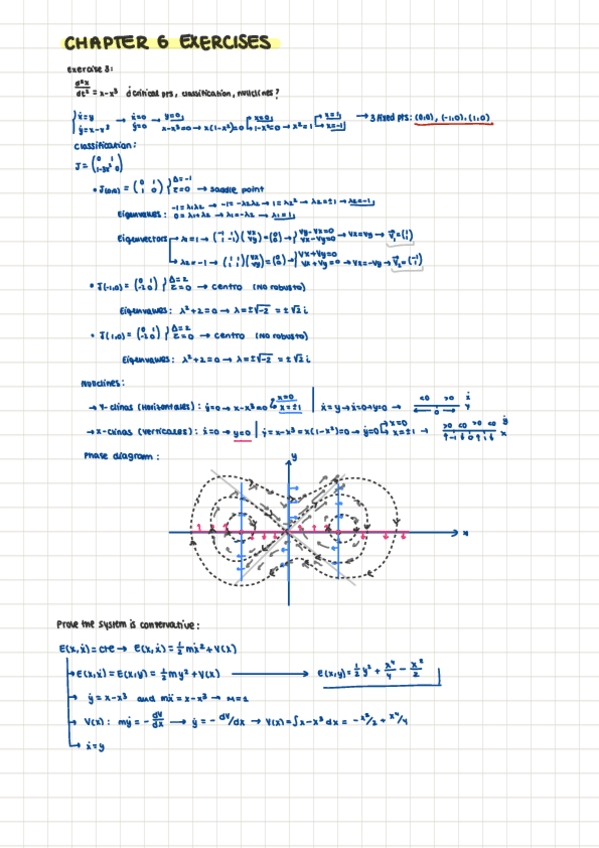 CHAPTER 6 EXERCISES
exercise 3:
d²x/dt² = x-x³ ¿critical pts, classification, nullclines?
{ẋ=y ẏ=x-x³ → ẋ=0 ẏ=0 → y=0, x-x³=0 → x(1-x²)=0 → x=0, 1-x²=0 → x²=1 → x=1, x=-1 → 3 fixed pts: (0,0), (-1,0), (1,0)
Classification:
J = (0 1 1-3x² 0)
• J(0,0) = (0 1 1 0) } Δ=-1 τ=0 → saddle point
Eigenvalues: -1=λ1λ2 → -1=-λ2λ2 → 1=λ2² → λ2=±1 → λ2=-1, 0=λ1+λ2 → λ1=-λ2 → λ1=1,
Eigenvectors λ1=1 → (-1 1 1 -1)(Vx Vy)=(0 0) → {Vy-Vx=0 Vx-Vy=0 → Vx=Vy → V⃗1=(1 1)
λ2=-1 → (1 1 1 1)(Vx Vy)=(0 0) → {Vx+Vy=0 Vx+Vy=0 → Vx=-Vy → V⃗2=(-1 1)
• J(-1,0) = (0 1 -2 0) } Δ=2 τ=0 → centro (No robusto)
Eigenvalues: λ²+2=0 → λ=±√-2 = ±√2 i
• J(1,0) = (0 1 -2 0) } Δ=2 τ=0 → centro (No robusto)
Eigenvalues: λ²+2=0 → λ=±√-2 = ±√2 i
Nullclines:
→ Y-clinas (Horizontales): ẏ=0 → x-x³=0 x=0 x=±1 | ẋ=y → ẋ=0 → y=0 → <0 >0 ẋ 0 y
→ X-clinas (Verticales): ẋ=0 → y=0 | ẏ=x-x³=x(1-x²)=0 → ẏ=0 x=0 x=±1 → >0 <0 >0 <0 ẏ -1 0 1 x
Phase diagram:
y
x
Prove the system is conservative:
E(x,ẋ)=cte → E(x,ẋ)=½mẋ²+V(x)
→ E(x,ẋ)=E(x,y)=½my²+V(x) → E(x,y)=½y²+x⁴/4-x²/2
→ ẏ=x-x³ and mẍ=x-x³ → m=1
→ V(x): mẏ=-dV/dx → ẏ=-dV/dx → V(x)=∫x-x³ dx = -x²/2 + x⁴/4
→ ẋ=y